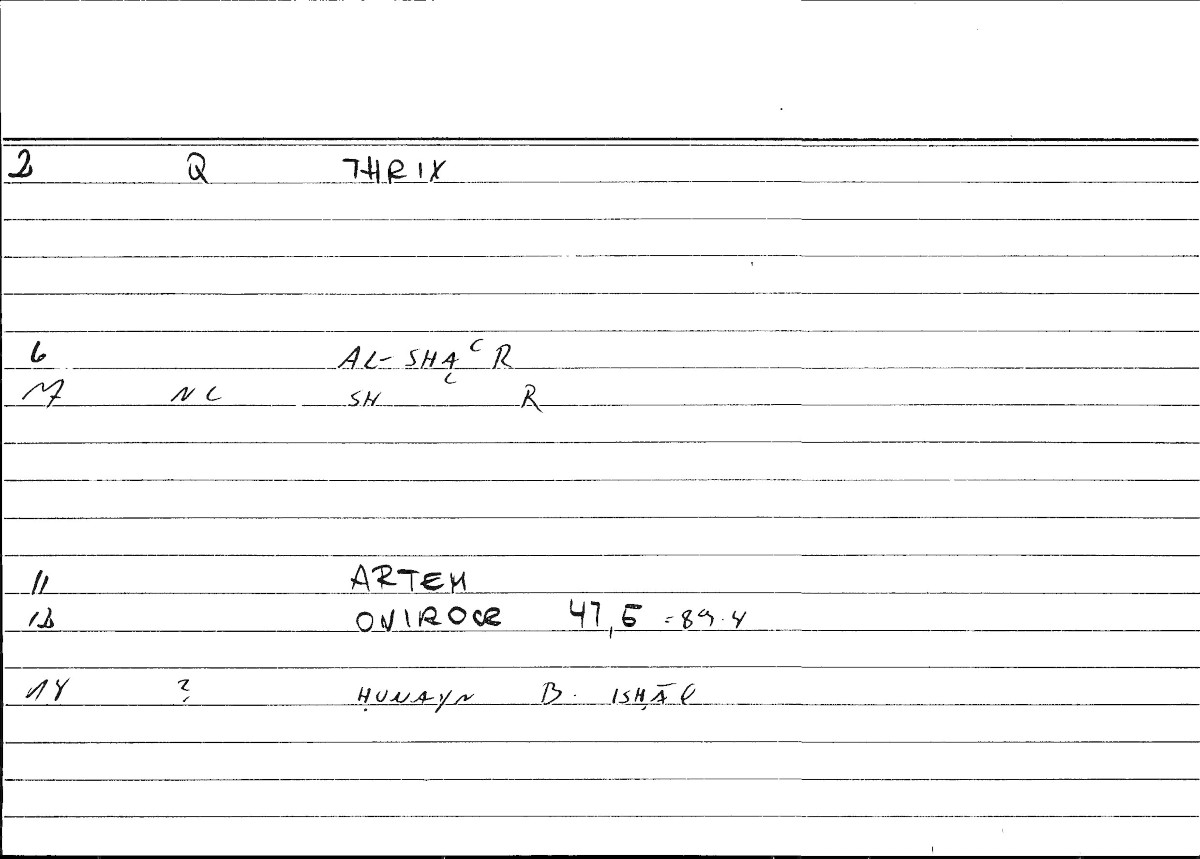 2 Q THRIX
6 AL-SHAʿR
7 NC SH R
11 ARTEM
12 ONIROCR 47,5 = 89.4
14 ? ḤUNAYN B. ISḤĀQ